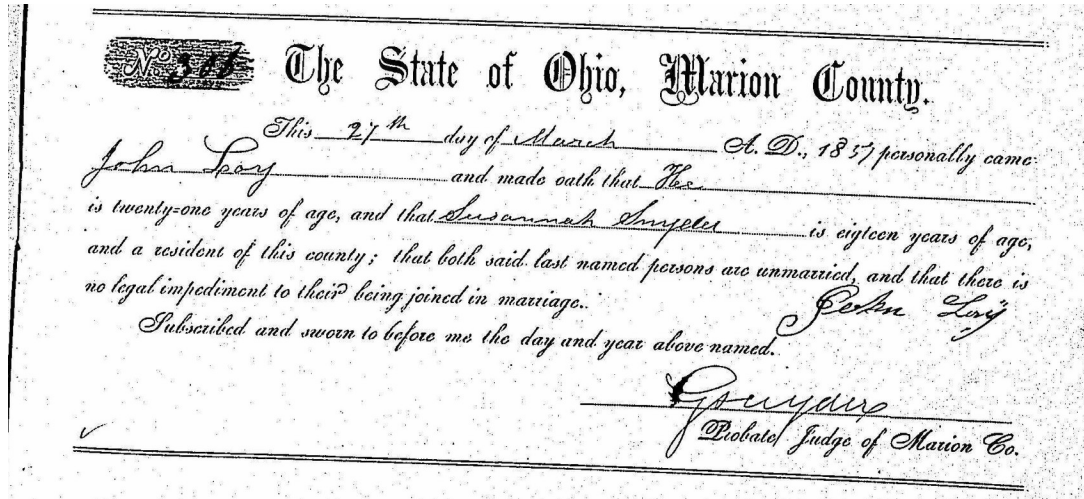 No 300 The State of Ohio, Marion County.
This 27th day of March A. D., 1857 personally came
John Loy and made oath that He
is twenty=one years of age, and that Susannah Snyder is eigteen years of age,
and a resident of this county; that both said last named persons are unmarried, and that there is
no legal impediment to their being joined in marriage..
John Loy
Subscribed and sworn to before me the day and year above named.
Probate Judge of Marion Co.